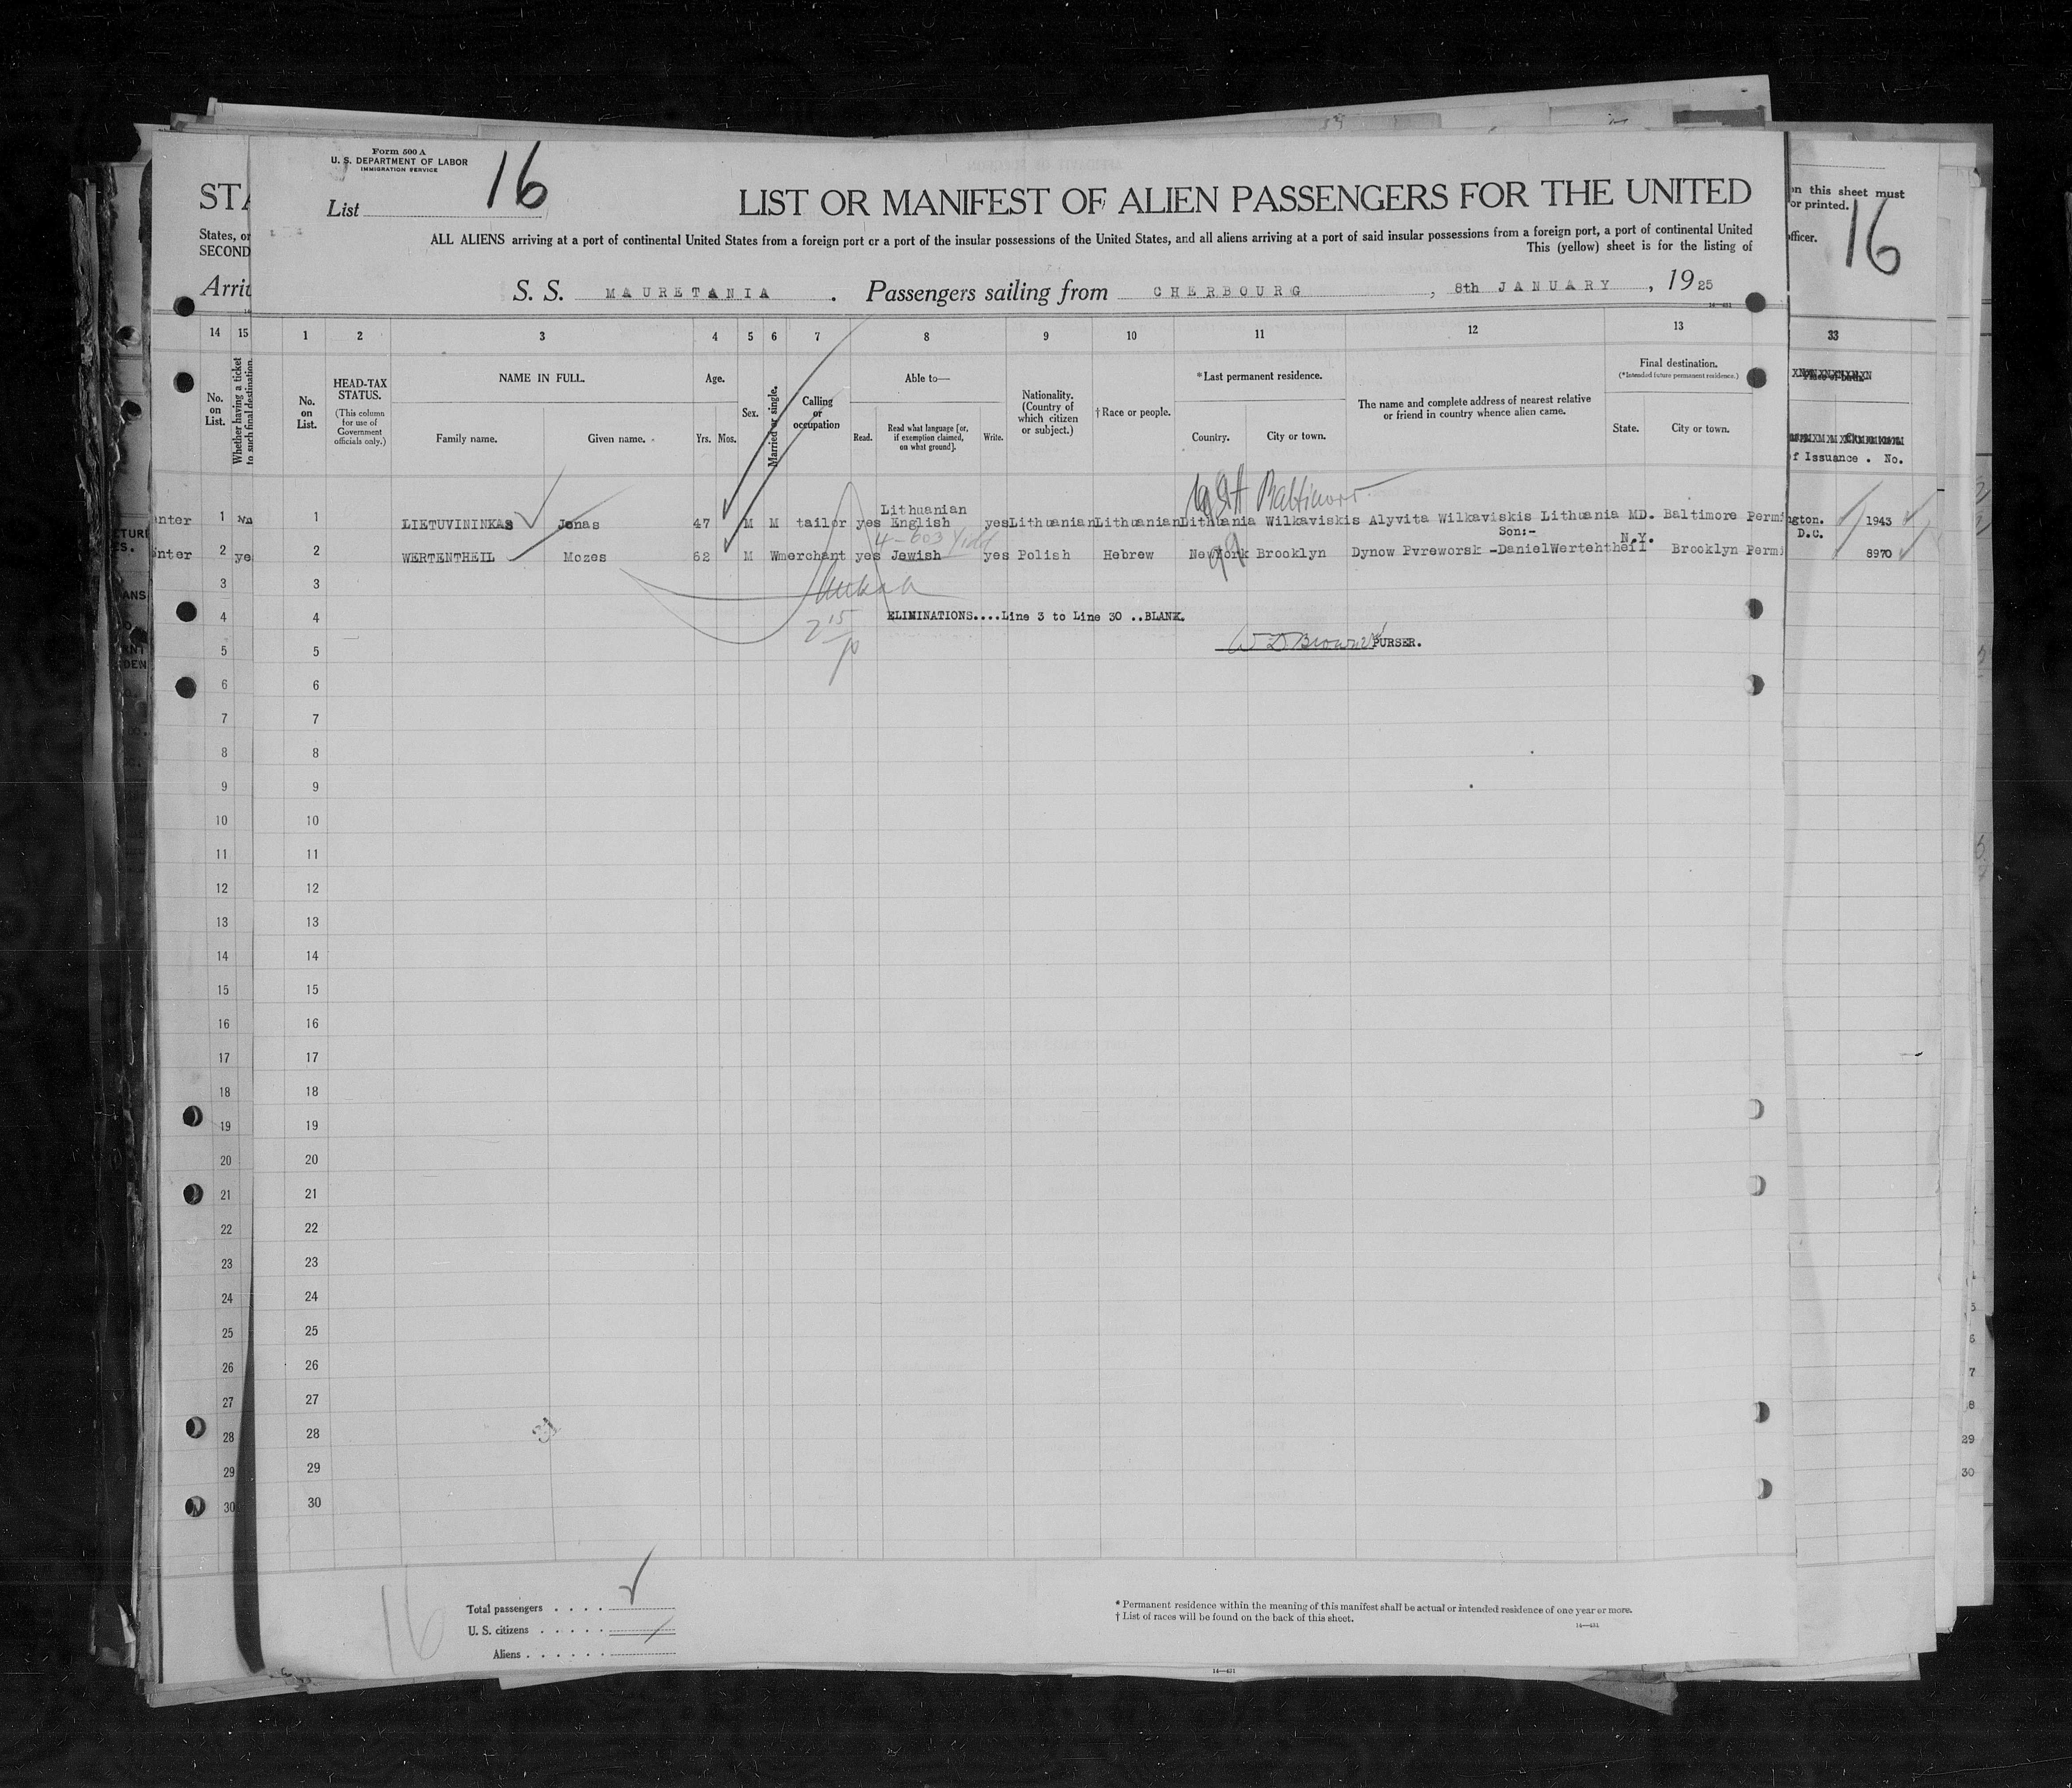 Form 500 A
U. S. DEPARTMENT OF LABOR
IMMIGRATION SERVICE
List 16
LIST OR MANIFEST OF ALIEN PASSENGERS FOR THE UNITED
ALL ALIENS arriving at a port of continental United States from a foreign port or a port of the insular possessions of the United States, and all aliens arriving at a port of said insular possessions from a foreign port, a port of continental United
This (yellow) sheet is for the listing of
S. S. MAURETANIA . Passengers sailing from CHERBOURG , 8th JANUARY , 1925
14—431
STA
States, or
SECOND
Arri
on this sheet must
or printed.
officer.
16
14 15
1 2 3 4 5 6 7 8 9 10 11 12 13
33
No. on List.
Whether having a ticket to such final destination.
No. on List.
HEAD-TAX STATUS.
(This column for use of Government officials only.)
NAME IN FULL.
Family name. Given name.
Age.
Yrs. Mos.
Sex.
Married or single.
Calling or occupation
Able to—
Read. Read what language [or, if exemption claimed, on what ground]. Write.
Nationality. (Country of which citizen or subject.)
† Race or people.
* Last permanent residence.
Country. City or town.
The name and complete address of nearest relative or friend in country whence alien came.
Final destination.
(* Intended future permanent residence.)
State. City or town.
f Issuance . No.
Baltimore
Lithuanian
1 LIETUVININKAS Jonas 47 M M tailor yes English yes Lithuanian Lithuanian Lithuania Wilkaviskis Alyvita Wilkaviskis Lithuania MD. Baltimore Permi
ngton. 1943
D.C.
4-603
Son:-
N.Y.
2 WERTENTHEIL Mozes 62 M W merchant yes Jewish yes Polish Hebrew NewYork Brooklyn Dynow Pvreworsk -DanielWertehtheil Brooklyn Permi
8970
3
4 ELIMINATIONS....Line 3 to Line 30 ..BLANK.
5 PURSER.
6
7
8
9
10
11
12
13
14
15
16
17
18
19
20
21
22
23
24
25
26
27
28
29
30
16
Total passengers
U. S. citizens
Aliens
* Permanent residence within the meaning of this manifest shall be actual or intended residence of one year or more.
† List of races will be found on the back of this sheet.
14—431
14—431